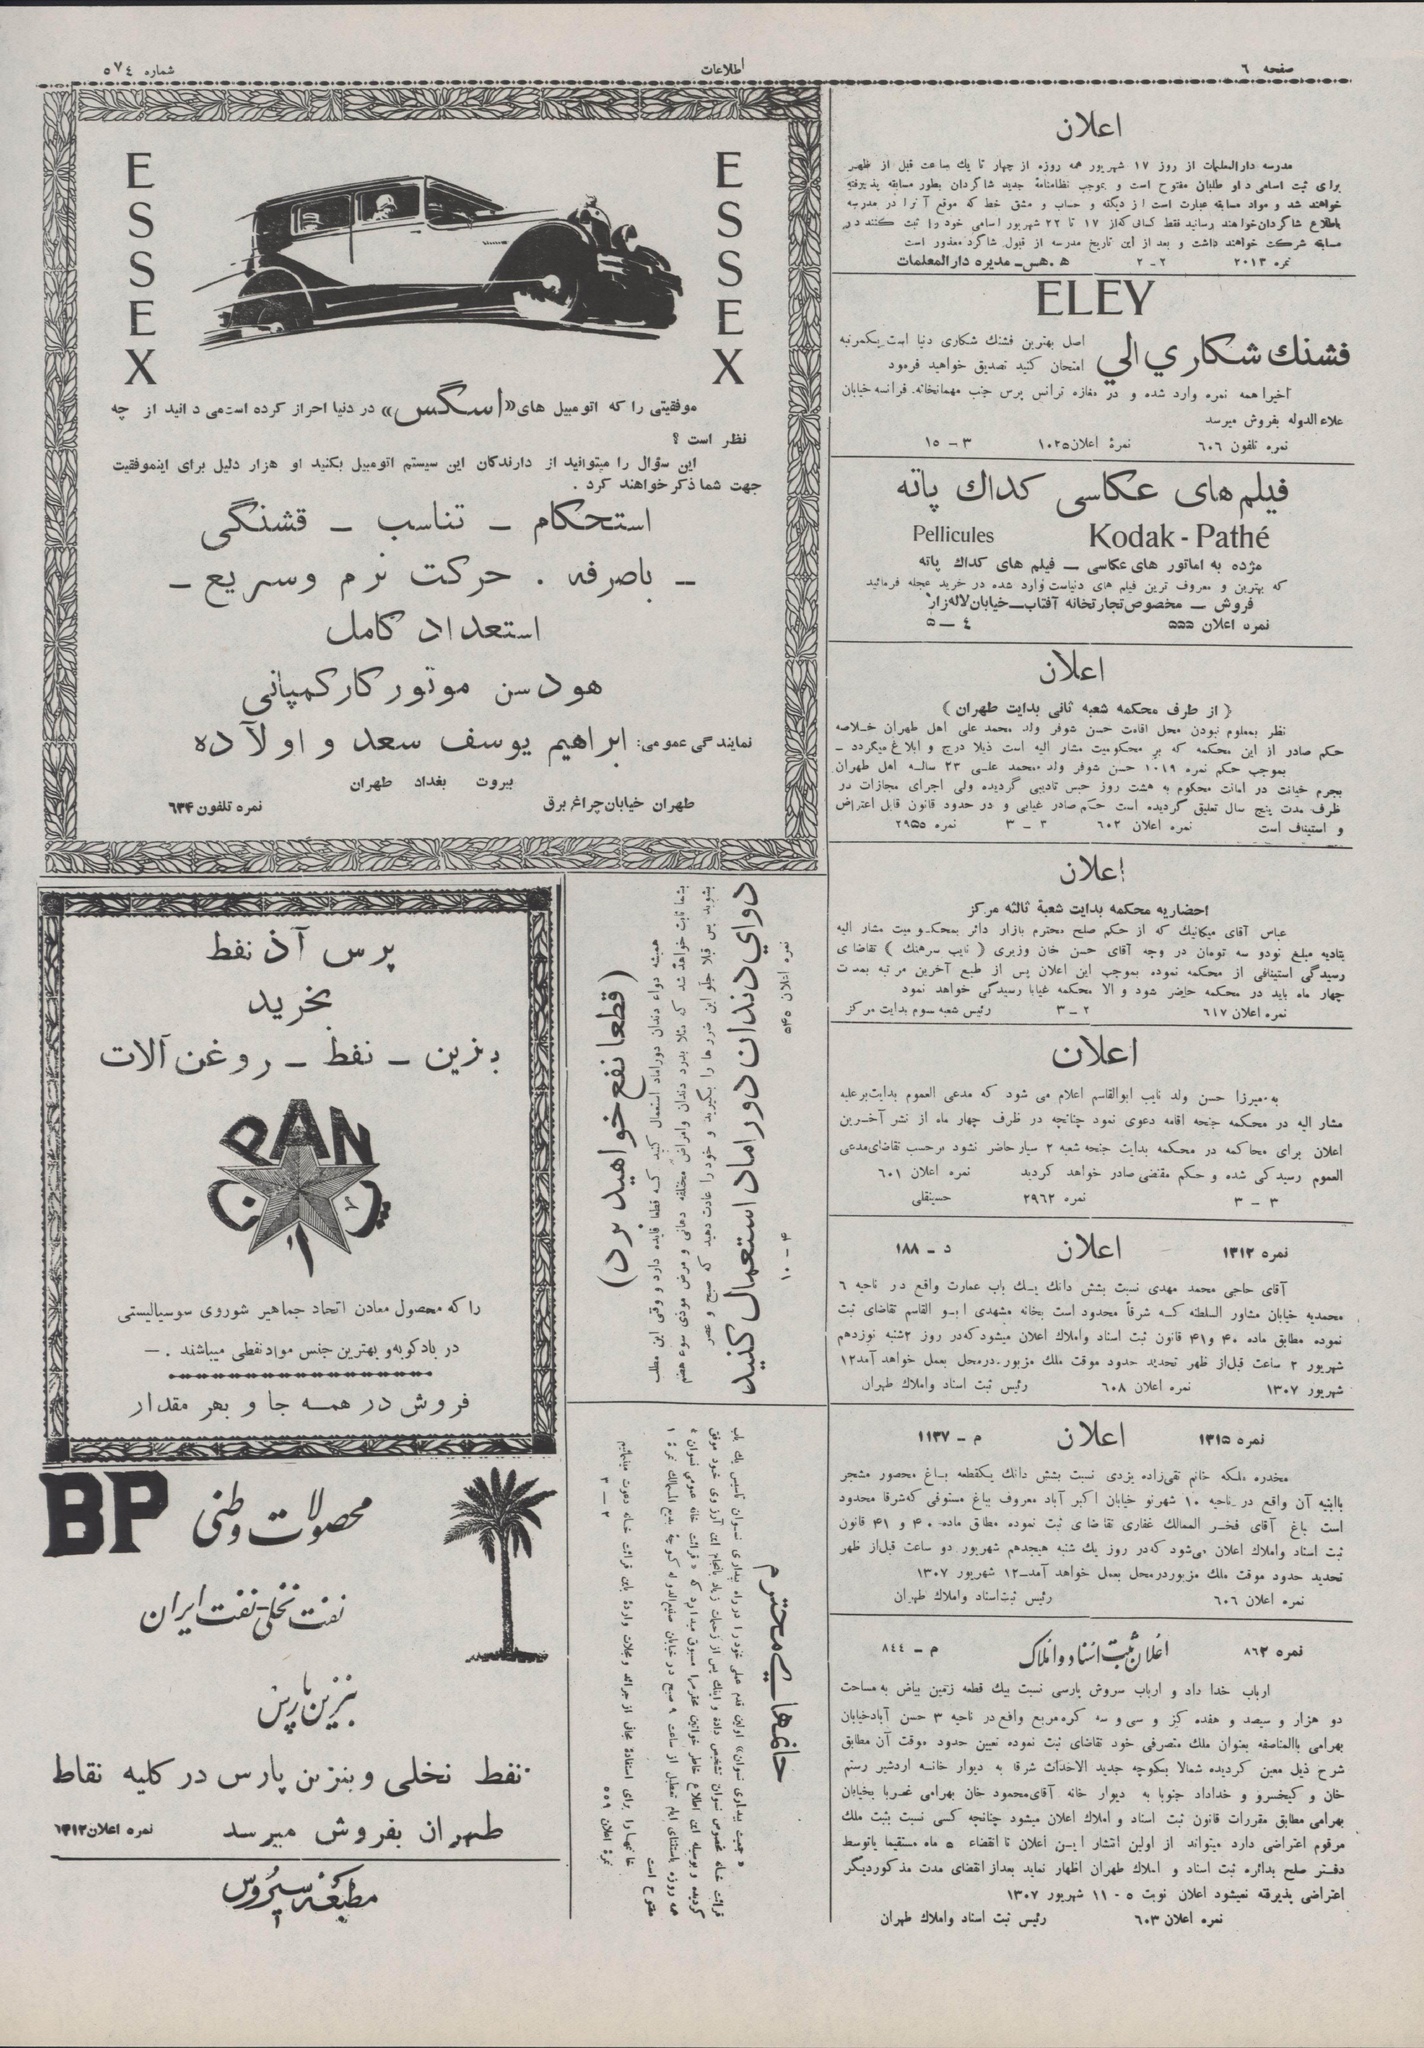 صفحه ٦
اطلاعات
شماره ٥٧٤
اعلان
مدرسه دارالمعلمات از روز ١٧ شهریور همه روزه از چهار تا یك ساعت قبل از ظهر
برای ثبت اسامی داو طلبان مفتوح است و بموجب نظامنامهٔ جدید شاگردان بطور مسابقه پذیرفته
خواهند شد و مواد مسابقه عبارت است از دیکته و حساب و مشق خط که موقع آنرا در مدرسه
باطلاع شاگردان خواهند رسانید فقط کسانی که از ١٧ تا ٢٢ شهریور اسامی خود را ثبت کنند در
مسابقه شرکت خواهند داشت و بعد از این تاریخ مدرسه از قبول شاگرد معذور است
نمره ٢٠١٣ ٢ـ٢ ه.هس ـ مدیره دارالمعلمات
ELEY
فشنك شكاري الي
اصل بهترین فشنك شکاری دنیا است یکمرتبه
امتحان کنید تصدیق خواهید فرمود
اخیرا همه نمره وارد شده و در مغازه ترانس پرس جنب مهمانخانه فرانسه خیابان
علاء الدوله بفروش میرسد
نمره تلفون ٦٠٦ نمرهٔ اعلان ١٠٢٥ ٣ ـ ١٥
فیلم های عکاسی کداك پاته
Pellicules Kodak - Pathé
مژده به اماتور های عکاسی ـ فیلم های کداك پاته
که بهترین و معروف ترین فیلم های دنیاست وارد شده در خرید عجله فرمائید
فروش ـ مخصوص تجارتخانه آفتاب ـ خیابان لاله زار
نمره اعلان ٥٥٥ ٤ ـ ٥
اعلان
( از طرف محکمه شعبه ثانی بدایت طهران )
نظر بمعلوم نبودن محل اقامت حسن شوفر ولد محمد علی اهل طهران خلاصه
حکم صادر از این محکمه که بر محکومیت مشار الیه است ذیلا درج و ابلاغ میگردد ـ
بموجب حکم نمره ١٠١٩ حسن شوفر ولد محمد علی ٢٣ ساله اهل طهران
بجرم خیانت در امانت محکوم به هشت روز حبس تادیبی گردیده ولی اجرای مجازات در
ظرف مدت پنج سال تعلیق گردیده است حکم صادر غیابی و در حدود قانون قابل اعتراض
و استیناف است نمره اعلان ٦٠٢ ٣ ـ ٣ نمره ٢٩٥٥
اعلان
احضاریه محکمه بدایت شعبه ثالثه مرکز
عباس آقای میکانیك که از حکم صلح محترم بازار دائر بمحکومیت مشار الیه
بتادیه مبلغ نودو سه تومان در وجه آقای حسن خان وزیری ( نایب سرهنك ) تقاضای
رسیدگی استینافی از محکمه نموده بموجب این اعلان پس از طبع آخرین مرتبه بمدت
چهار ماه باید در محکمه حاضر شود و الا محکمه غیابا رسیدگی خواهد نمود
نمره اعلان ٦١٧ ٢ ـ ٣ رئیس شعبه سوم بدایت مرکز
اعلان
به میرزا حسن ولد نایب ابوالقاسم اعلام می شود که مدعی العموم بدایت بر علیه
مشار الیه در محکمه جنحه اقامه دعوی نمود چنانچه در ظرف چهار ماه از نشر آخرین
اعلان برای محاکمه در محکمه بدایت جنحه شعبه ٢ سیار حاضر نشود برحسب تقاضای مدعی
العموم رسیدگی شده و حکم مقتضی صادر خواهد گردید نمره اعلان ٦٠١
٣ ـ ٣ نمره ٢٩٦٢ حسینقلی
نمره ١٣١٢ اعلان د ـ ١٨٨
آقای حاجی محمد مهدی نسبت بشش دانك یك باب عمارت واقع در ناحیه ٦
محمدیه خیابان مشاور السلطنه که شرقاً محدود است بخانه مشهدی ابو القاسم تقاضای ثبت
نموده مطابق ماده ٤٠ و ٤١ قانون ثبت اسناد و املاك اعلان میشود که در روز ٢شنبه نوزدهم
شهریور ٢ ساعت قبل از ظهر تحدید حدود موقت ملك مزبور درمحل بعمل خواهد آمد ١٢
شهریور ١٣٠٧ نمره اعلان ٦٠٨ رئیس ثبت اسناد و املاك طهران
نمره ١٣١٥ اعلان م ـ ١١٣٧
مخدره ملکه خانم تقی زاده یزدی نسبت بشش دانك یکقطعه باغ محصور مشجر
باابنیه آن واقع در ناحیه ١٠ شهرنو خیابان اکبر آباد معروف بباغ مستوفی که شرقا محدود
است بباغ آقای فخر الممالك غفاری تقاضای ثبت نموده مطابق ماده ٤٠ و ٤١ قانون
ثبت اسناد و املاك اعلان می شود که در روز یك شنبه هیجدهم شهریور دو ساعت قبل از ظهر
تحدید حدود موقت ملك مزبور درمحل بعمل خواهد آمد ـ ١٢ شهریور ١٣٠٧
نمره اعلان ٦٠٦ رئیس ثبت اسناد و املاك طهران
نمره ٨٦٢ اعلان ثبت اسناد و املاک م ـ ٨٤٤
ارباب خدا داد و ارباب سروش پارسی نسبت بیك قطعه زمین بیاض به مساحت
دو هزار و سیصد و هفده گز و سی و سه گره مربع واقع در ناحیه ٣ حسن آباد خیابان
بهرامی باالمناصفه بعنوان ملك متصرفی خود تقاضای ثبت نموده تعیین حدود موقت آن مطابق
شرح ذیل معین گردیده شمالا بکوچه جدید الاحداث شرقا به دیوار خانه اردشیر رستم
خان و کیخسرو و خداداد جنوبا به دیوار خانه آقای محمود خان بهرامی غربا بخیابان
بهرامی مطابق مقررات قانون ثبت اسناد و املاك اعلان میشود چنانچه کسی نسبت بثبت ملك
مرقوم اعتراضی دارد میتواند از اولین انتشار این اعلان تا انقضاء ٥ ماه مستقیما یاتوسط
دفتر صلح بدائره ثبت اسناد و املاك طهران اظهار نماید بعد از انقضای مدت مذکور دیگر
اعتراضی پذیرفته نمیشود اعلان نوبت ٥ ـ ١١ شهریور ١٣٠٧
نمره اعلان ٦٠٣ رئیس ثبت اسناد و املاك طهران
ESSEX
ESSEX
موفقیتی را که اتومبیل های «اسگس» در دنیا احراز کرده است می دانید از چه
نظر است ؟
این سؤال را میتوانید از دارندگان این سیستم اتومبیل بکنید او هزار دلیل برای اینموفقیت
جهت شما ذکر خواهند کرد .
استحکام ـ تناسب ـ قشنگی
ـ باصرفه . حرکت نرم وسریع ـ
استعداد کامل
هودسن موتور کار کمپانی
نمایندگی عمومی: ابراهیم یوسف سعد و اولاده
بیروت بغداد طهران
طهران خیابان چراغ برق نمره تلفون ٦٣٤
دوای دندان دوراماد استعمال کنید
(قطعا نفع خواهید برد)
همیشه دواء دندان دوراماد استعمال کنید که قطعا فایده دارد وقتی این مطلب
بشما ثابت خواهد شد که مثلا بدرد دندان وامراض مختلفه دهانی و مرض موذی سوء هضم
بشوید پس قبلا جلو این ضرر ها را بگیرید و خود را عادت دهید که صبح و عصر
نمره اعلان ٥٤٥ ٤ ـ ١٠
خانمهای محترم
«جمعیت بیداری نسوان» اولین قدم عملی خود را در راه بیداری نسوان تاسیس یك باب
قرائت خانه مخصوص نسوان تشخیص داده و اینك پس از زحمات زیاد بانجام این آرزوی خود موفق
گردیده و بوسیله این اطلاع خاطر خواتین محترمرا مسبوق میدارد که «قرائت خانه عمومی نسوان»
همه روزه باستثنای ایام تعطیل از ساعت ٩ صبح در خیابان صنیع الدوله کوچهٔ بدیع الممالك نمرهٔ ١
مفتوح است
خانمها را برای استفادهٔ مجانی از جرائد و مجلات واردهٔ باین قرائت خانه دعوت مینمائیم
نمرهٔ اعلان ٥٥٩ ٢ ـ ٢
پرس آذ نفط
بخرید
بنزین ـ نفط ـ روغن آلات
PAN
پرس آ ن
را که محصول معادن اتحاد جماهیر شوروی سوسیالیستی
در بادکوبه و بهترین جنس مواد نفطی میباشند . ـ
فروش در همه جا و بهر مقدار
BP
محصولات وطنی
نفت نخلی ـ نفت ایران
بنزین پارس
نفط نخلی و بنزین پارس در کلیه نقاط
طهران بفروش میرسد نمره اعلان ١٣١٢
مطبعه سیروس